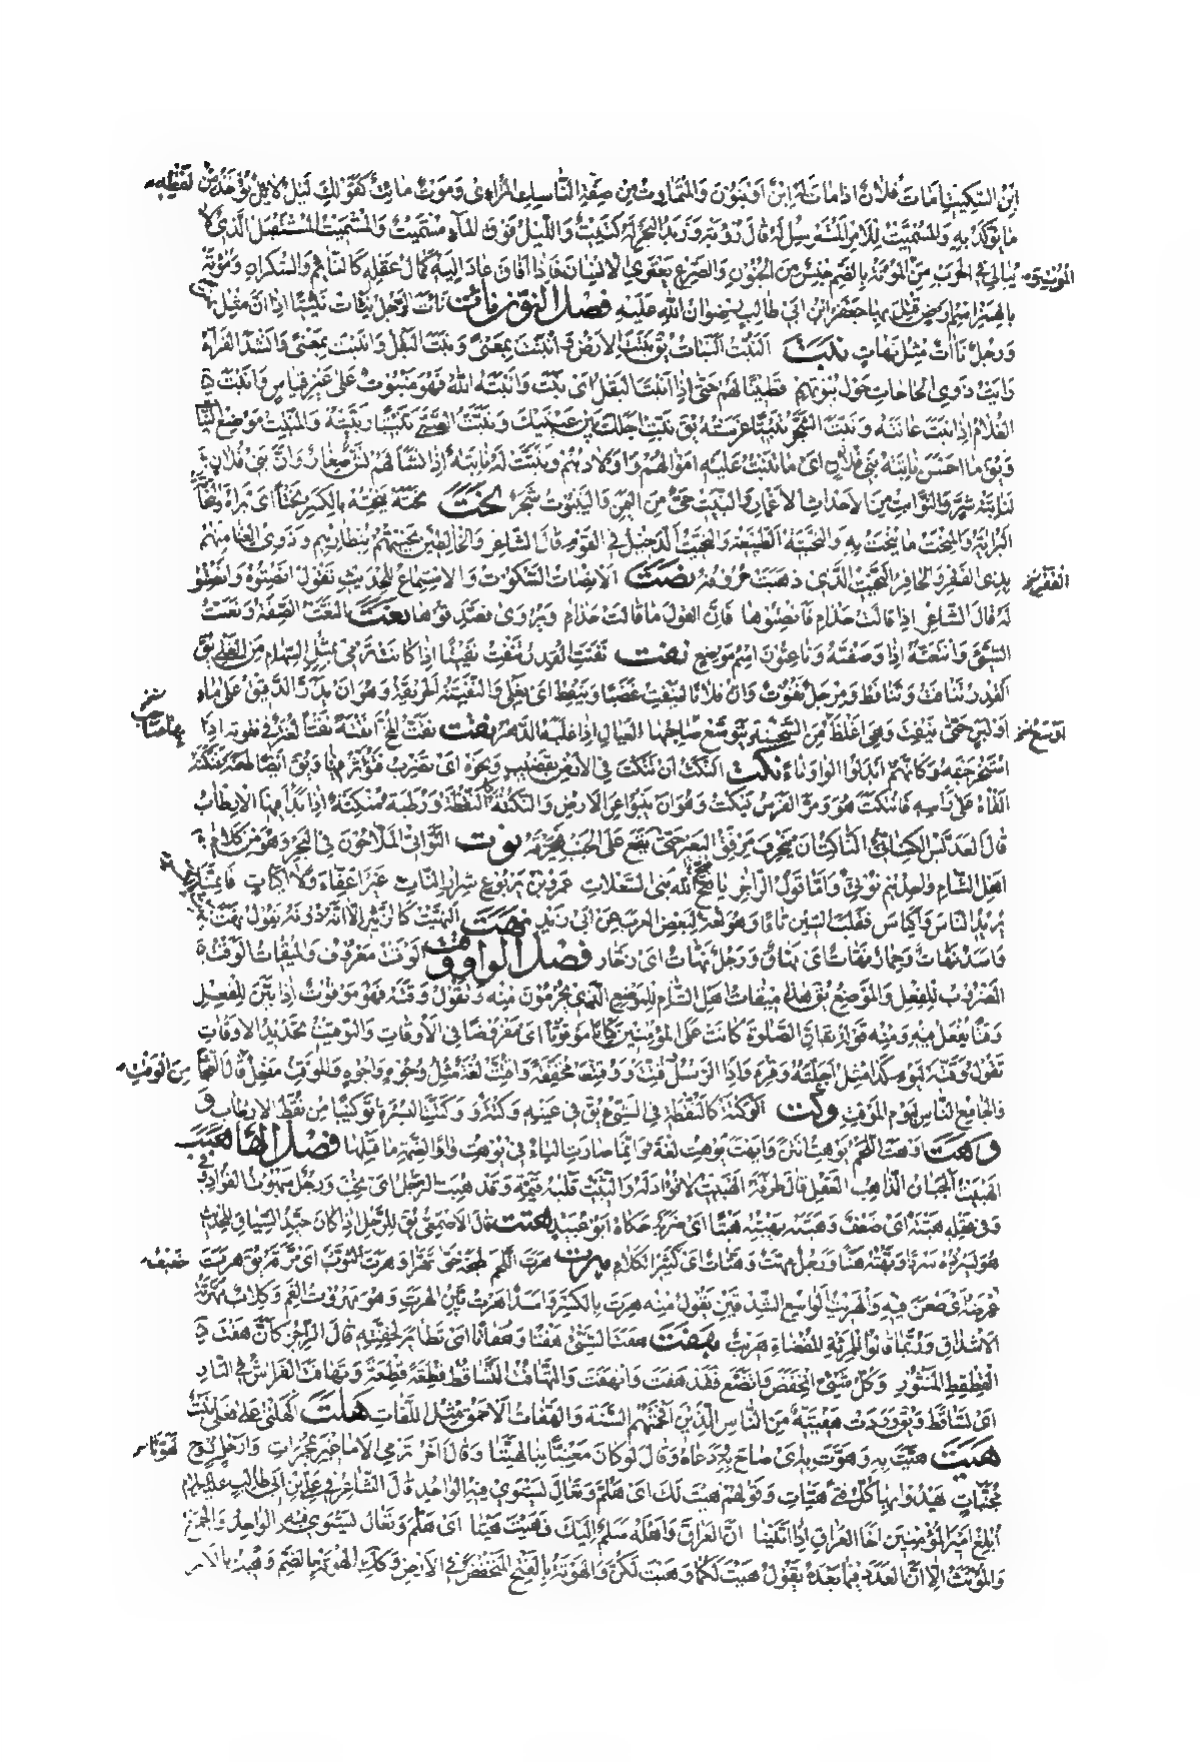 ابن السكيت امات فلان اذا مات له ابن او بنون والمتماوت من صفة الناسك المرائي وموت مائت كقولك ليل لائل يؤخذ من لفظه
ما يؤكد به والمستميت للامر المسترسل له قال رؤبة وزبد البحر له كتيت والليل فوق الماء مستميت والمستميت المستقتل الذي لا
يبالي في الحرب من الموت والموتة بالضم جنس من الجنون والصرع يعتري الانسان فاذا افاق عاد اليه كمال عقله كالنائم والسكران ومؤتة
بالهمز اسم ارض قتل بها جعفر ابن ابي طالب رضوان الله عليه فصل النون نأت نأت الرجل ينئت نئيتا اذا ان مثل
ورجل نآت مثل نهات نبت النبت النبات يق نبتت الارض وانبتت بمعنى ونبت البقل وانبت بمعنى وانشد الفراء
رايت ذوي الحاجات حول بيوتهم قطينا لهم حتى اذا انبت البقل اي نبت وانبته الله فهو منبوت على غير قياس وانبت
الغلام اذا نبتت عانته ونبت الشجر تنبيتا غرسته يق نبت اجلك بين عينيك ونبت الصبي تنبيتا ربيته والمنبت موضع النبات
ويق ما احسن نابتة بني فلان اي ما تنبت عليه اموالهم واولادهم ونبتت لهم نابتة اذا نشأ لهم نشؤ صغار وان بني فلان
لنابتة شر والنوابت من الاحداث الاغمار والنبيت حي من اليمن والينبوت شجر نحت نحته ينحته بالكسر نحتا اي براه والنحاتة
البراية والمنحت ما ينحت به والنحيتة الطبيعة والنحيت الدخيل في القوم قال الشاعر والخالطين نحيتهم بنضارهم وذوي الغنى منهم
بذي الفقر والحافر النحيت الذي ذهبت حروفه نصت الانصات السكوت والاستماع للحديث تقول انصتوه وانصتوا
له قال الشاعر اذا قالت حذام فانصتوها فان القول ما قالت حذام ويروى فصدقوها نعت النعت الصفة ونعت
الشيء وانتعته اذا وصفته وناعتون اسم موضع نفت نفتت القدر تنفت نفيتا اذا كانت ترمي بمثل السهام من الغلي يق
القدر تنافت وتنافط ومرجل نفوت وان فلانا لينفت غضبا وينفط اي يغلي والنفيتة الحريقة وهو ان يذر الدقيق على ماء
او لبن حتى ينفت وهي اغلظ من السخينة يتوسع بها صاحب العيال اذا غلبه الدهر نقت نقت المخ انقته نقتا لغة في نقوته اذا
استخرجته وكانهم ابدلوا الواو تاء نكت النكت ان تنكت في الارض بقضيب ونحوه اي تضرب فتؤثر فيها ويق ايضا طعنه فنكته
القاه على راسه فانتكت هو ومر الفرس ينكت وهو ان ينبو عن الارض والنكتة كالنقطة ورطبة منكتة اذا بدا فيها الارطاب
قال العدبس الكناني الناكت ان ينحرف مرفق البعير حتى يقع على الجنب فيحزه نوت النواتي الملاحون في البحر وهو من كلام
اهل الشام واحدهم نوتي واما قول الراجز يا قبح الله بني السعلات عمرو بن يربوع شرار النات غير اعفاء ولا اكيات فانما
يريد الناس واكياس فقلب السين تاء وهو لغة لبعض العرب عن ابي زيد نهت النهيت كالزئير الا انه دونه يقول نهت
فاسد نهات وحمار نهات اي نهاق ورجل نهات اي زحار فصل الواو وقت الوقت معروف والميقات الوقت
المضروب للفعل والموضع يق هذا ميقات اهل الشام للموضع الذي يحرمون منه وتقول وقته فهو موقوت اذا بين للفعل
وقتا يفعل فيه ومنه قوله تعالى الصلوة كانت على المؤمنين كتابا موقوتا اي مفروضا في الاوقات والتوقيت تحديد الاوقات
تقول وقته ليوم كذا مثل اجلته وقرئ واذا الرسل وقتت ووقتت مخففة واقتت لغة مثل وجوه واجوه والموقت مفعل من الوقت قال العجاج
والجامع الناس ليوم الموقت وكت الوكتة كالنقطة في الشيء يق في عينه وكتة ووكتت البسرة توكيتا من نقط الارطاب
وهت وهت اللحم يوهت انتن وايهت يوهت لغة وانما صارت الياء في يوهت واوا لضمة ما قبلها فصل الهاء هبت
الهبيت الجبان الذاهب العقل قال طرفة الهبيت لا فؤاد له والثبيت قلبه قيمه وقد هبت الرجل اي نخب ورجل مهبوت الفؤاد
وفي عقله هبتة اي ضعف وهبته يهبته هبتا اي ضربه حكاه ابو عبيد هتت قال الاصمعي يق للرجل اذا كان جيد السياق للحديث
هو يسرده سردا ويهته هتا ورجل مهت وهتات اي خفيف كثير الكلام هرت هرت اللحم طبخه حتى تهرا وهرت الثوب اي مزقه يق هرت
عرضه اي طعن فيه والهرت الواسع الشدقين يقول منه هرت بالكسر واسد اهرت بين الهرت وهو مهروت الفم وكلاب مهرتة
الاشداق وربما قالوا للمراة المفضاة هريت هفت هفت الشيء هفتا وهفاتا اي تطاير لخفته قال الراجز كان هفت
القطقط المنثور وكل شيء انخفض واتضع فقد هفت وانهفت والتهافت التساقط قطعة قطعة وتهافت الفراش في النار
اي تساقط ويق وردت هفيتة من الناس للذين اقحمتهم السنة والهفات الاحمق مثل اللفات هلت الهلتى على فعلى نبت
هيت هيت به وهوت به اي صاح به ودعاه وقال لو كان معنيا بها لهيتا وقال آخر ترمي الاماعيز بمجمرات وارجل روح
مجنبات يحدو بها كل فتى هيات وقولهم هيت لك اي هلم وتعال يستوي فيه الواحد قال الشاعر في علي بن ابي طالب عليه السلم
ابلغ امير المؤمنين اخا العراق اذا اتينا ان العراق واهله سلم اليك فهيت هيتا اي هلم وتعال يستوي فيه الواحد والجمع
والمؤنث الا ان العدد فيما بعده يقول هيت لكما وهيت لكن والهوتة بالفتح المنخفض من الارض وكك الهوتة بالضم وهيت بالكسر